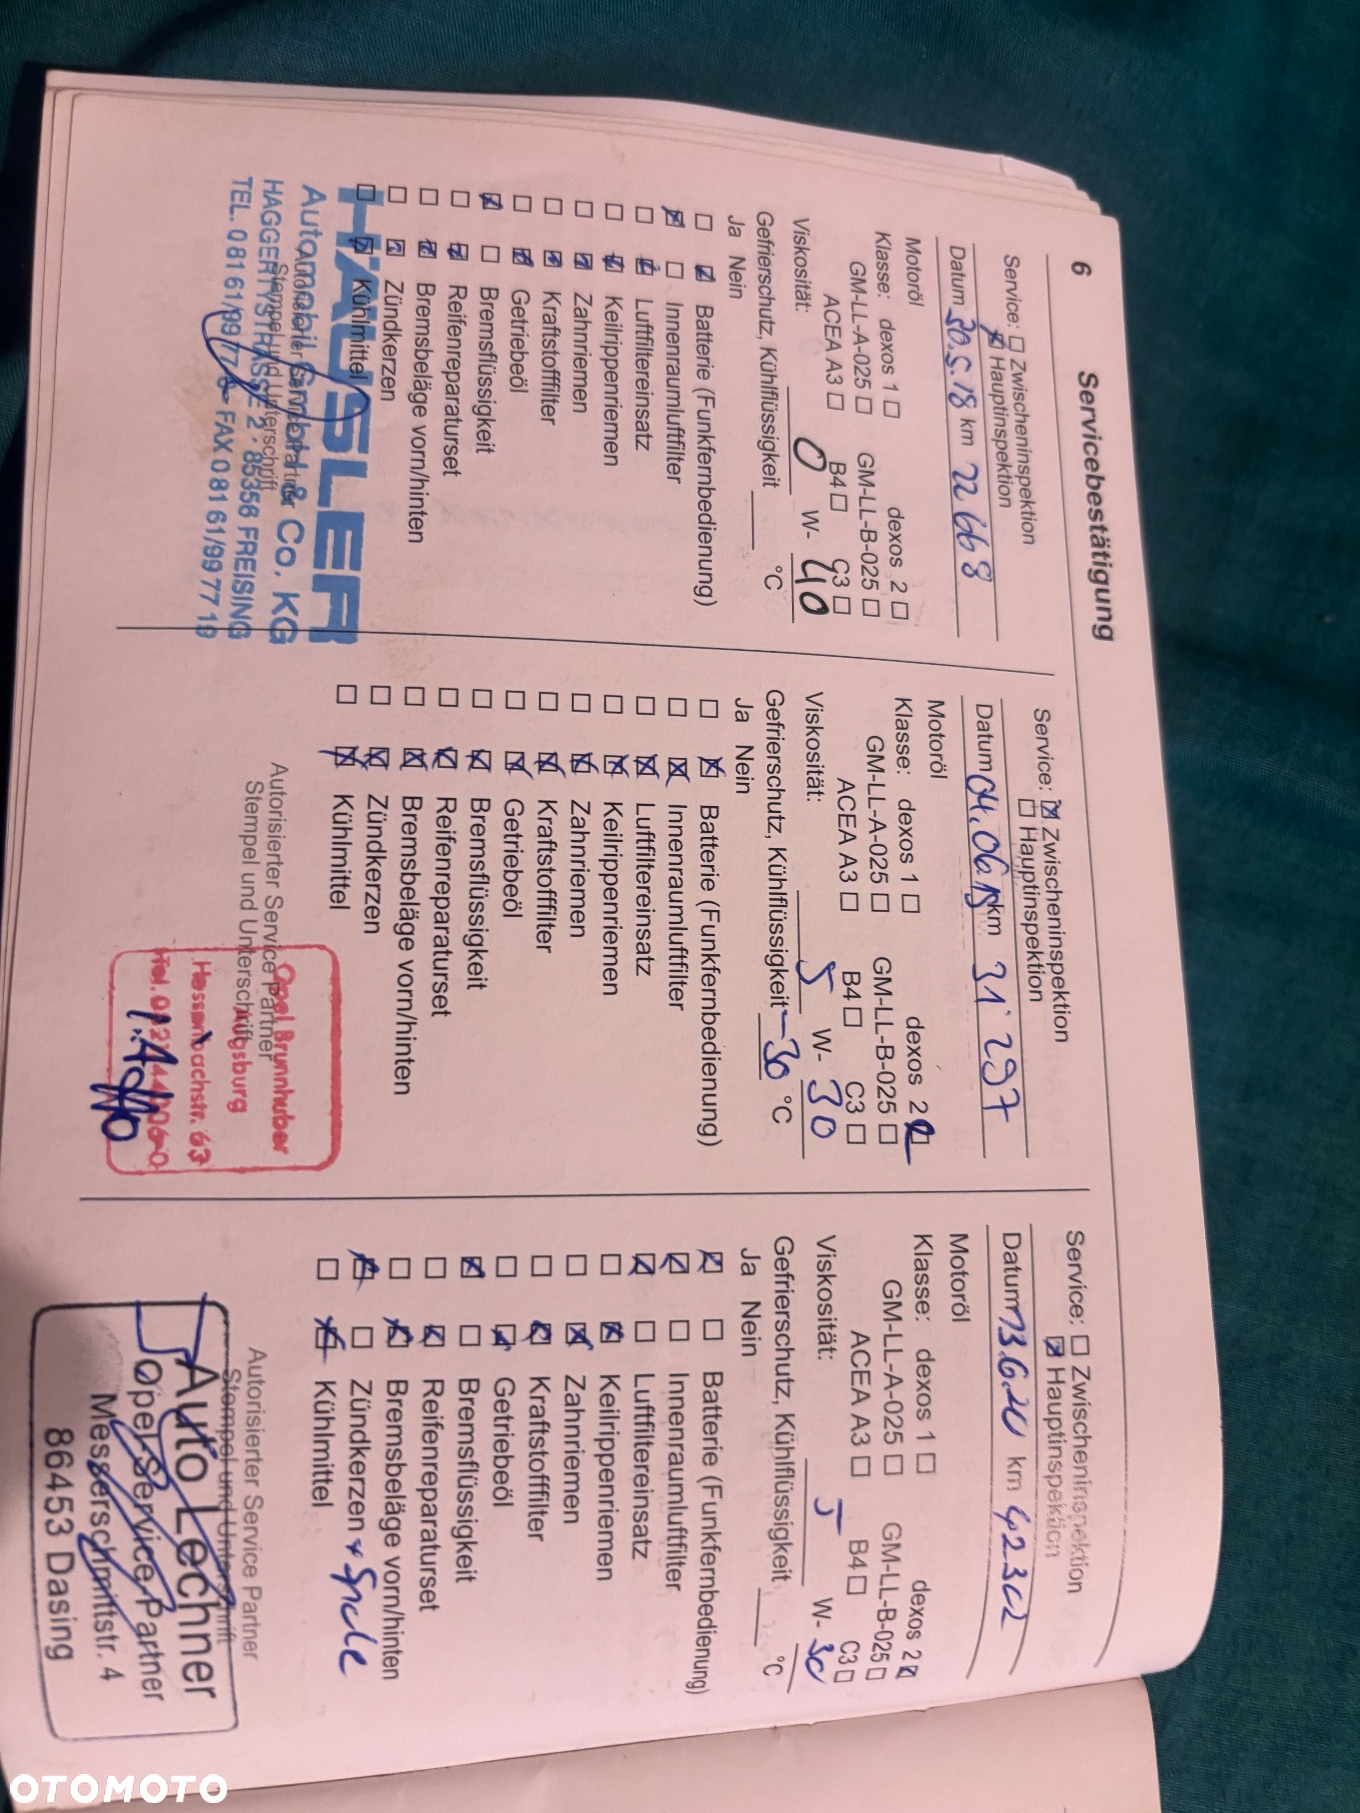 6 Servicebestätigung
Service: ☐ Zwischeninspektion
☒ Hauptinspektion
Datum 30.5.18 km 22668
Motoröl
Klasse: dexos 1 ☐ dexos 2 ☐
GM-LL-A-025 ☐ GM-LL-B-025 ☐
ACEA A3 ☐ B4 ☐ C3 ☐
Viskosität: 0 W- 40
Gefrierschutz, Kühlflüssigkeit ____ °C
Ja Nein
☐ ☒ Batterie (Funkfernbedienung)
☒ ☐ Innenraumluftfilter
☐ ☒ Luftfiltereinsatz
☐ ☒ Keilrippenriemen
☐ ☒ Zahnriemen
☐ ☒ Kraftstofffilter
☐ ☒ Getriebeöl
☒ ☐ Bremsflüssigkeit
☐ ☒ Reifenreparaturset
☐ ☒ Bremsbeläge vorn/hinten
☐ ☒ Zündkerzen
☐ ☒ Kühlmittel
Autorisierter Service Partner
Stempel und Unterschrift
HÄUSLER
Automobil GmbH & Co. KG
HAGGERTYSTRASSE 2 · 85356 FREISING
FAX 0 81 61/99 77 19
Service: ☒ Zwischeninspektion
☐ Hauptinspektion
Datum 04.06.19 km 31.297
Motoröl
Klasse: dexos 1 ☐ dexos 2 ☒
GM-LL-A-025 ☐ GM-LL-B-025 ☐
ACEA A3 ☐ B4 ☐ C3 ☐
Viskosität: 5 W- 30
Gefrierschutz, Kühlflüssigkeit -30 °C
Ja Nein
☐ ☒ Batterie (Funkfernbedienung)
☐ ☒ Innenraumluftfilter
☐ ☒ Luftfiltereinsatz
☐ ☒ Keilrippenriemen
☐ ☒ Zahnriemen
☐ ☒ Kraftstofffilter
☐ ☒ Getriebeöl
☐ ☒ Bremsflüssigkeit
☐ ☒ Reifenreparaturset
☐ ☒ Bremsbeläge vorn/hinten
☐ ☒ Zündkerzen
☐ ☒ Kühlmittel
Autorisierter Service Partner
Stempel und Unterschrift
Opel Brunnhuber
Augsburg
Hessenbachstr. 63
Service: ☐ Zwischeninspektion
☒ Hauptinspektion
Datum 13.6.20 km 42302
Motoröl
Klasse: dexos 1 ☐ dexos 2 ☒
GM-LL-A-025 ☐ GM-LL-B-025 ☐
ACEA A3 ☐ B4 ☐ C3 ☐
Viskosität: 5 W- 30
Gefrierschutz, Kühlflüssigkeit ____ °C
Ja Nein
☒ ☐ Batterie (Funkfernbedienung)
☒ ☐ Innenraumluftfilter
☒ ☐ Luftfiltereinsatz
☐ ☒ Keilrippenriemen
☐ ☒ Zahnriemen
☐ ☒ Kraftstofffilter
☐ ☒ Getriebeöl
☒ ☐ Bremsflüssigkeit
☐ ☒ Reifenreparaturset
☐ ☒ Bremsbeläge vorn/hinten
☒ ☐ Zündkerzen
☐ ☒ Kühlmittel
Autorisierter Service Partner
Stempel und Unterschrift
Auto Lechner
Opel Service Partner
Messerschmittstr. 4
86453 Dasing
OTOMOTO